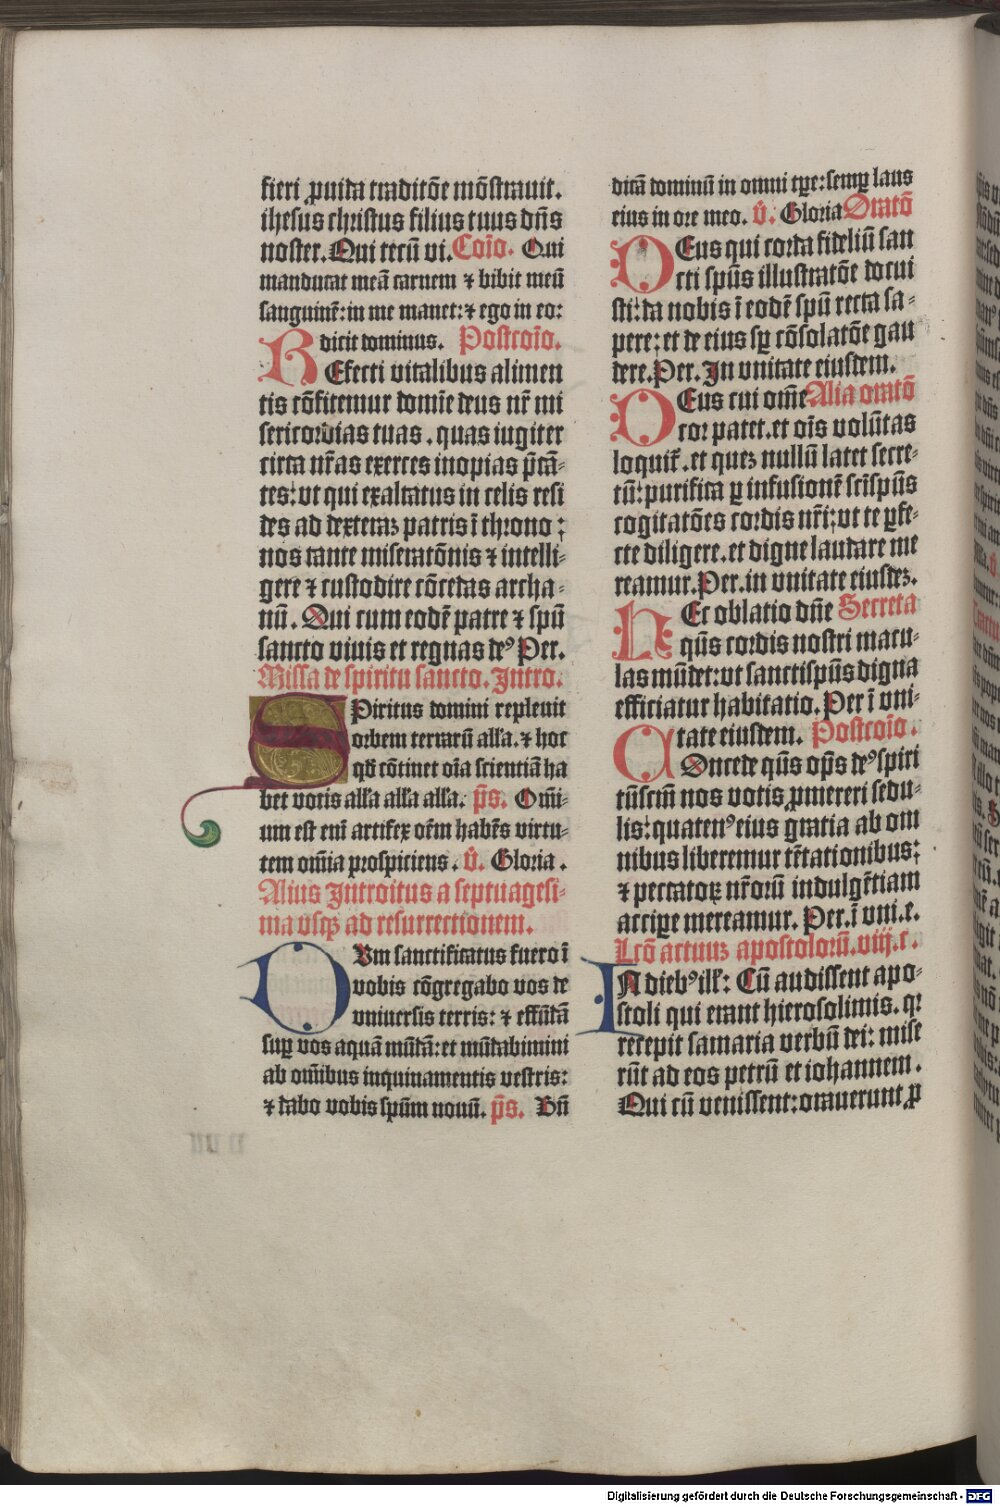 fieri ꝓuida traditōe mōstrauit.
ihesus christus filius tuus dn̄s
noster. Qui tecū vi. Cōio. Qui
manducat meā carnem ⁊ bibit meū
sanguinē: in me manet: ⁊ ego in eo:
dicit dominus. Postcōio.
REfecti vitalibus alimen
tis cōfitemur domīe deus nr̄ mi
sericordias tuas. quas iugiter
circa nr̄as exerces inopias p̄cā-
tes: vt qui exaltatus in celis resi
des ad dexteraꝫ patris ī throno:
nos tante miseratōnis ⁊ intelli-
gere ⁊ custodire cōcedas archa-
nū. Qui cum eodē patre ⁊ spū
sancto viuis et regnas deꝰ Per.
Missa de spiritu sancto. Intro.
SPiritus domini repleuit
orbem terrarū alla. ⁊ hoc
qd̄ cōtinet oīa scientiā ha
bet vocis alla alla alla. p̄s. Om̄i-
um est eni artifex oēm habēs virtu-
tem om̄ia prospiciens. v̄. Gloria.
Alius Introitus a septuagesi-
ma vsqꝫ ad resurrectionem.
DVm sanctificatus fuero ī
vobis cōgregabo vos de
vniuersis terris: ⁊ effūdā
suꝑ vos aquā mūdā: et mūdabimini
ab om̄ibus inquinamentis vestris:
⁊ dabo vobis spūm nouū. p̄s. Bn̄
dicā dominū in omni tꝑe: semꝑ laus
eius in ore meo. v̄. Gloria Oratō
DEus qui corda fideliū san
cti spūs illustratōe docui
sti: da nobis ī eodē spū recta sa-
pere: et de eius sꝑ cōsolatōe gau
dere. Per. In vnitate eiusdem.
DEus cui om̄e Alia oratō
cor patet. et oīs volūtas
loquit̄. et queꝫ nullū latet secre-
tū: purifica ꝑ infusionē sci̅spūs
cogitatōes cordis nr̄i: vt te ꝑfe-
cte diligere. et digne laudare me
reamur. Per. in vnitate eiusdeꝫ.
HEc oblatio dn̄e Secreta
qūs cordis nostri macu-
las mūdet: vt sanctispūs digna
efficiatur habitatio. Per ī vni-
tate eiusdem. Postcōio.
COncede qūs op̄s deꝰ spiri
tūscm̄ nos votis ꝓmereri sedu-
lis: quatenꝰ eius gratia ab om
nibus liberemur tētationibus:
⁊ peccatoꝝ nr̄orū indulgētiam
accipe mereamur. Per. ī vni. e.
Lcō actuuꝫ apostolorū. viij. c.
IN diebꝰ ill̄: Cū audissent apo-
stoli qui erant hierosolimis. qꝛ
recepit samaria verbū dei: mise
rūt ad eos petrū et iohannem.
Qui cū venissent: orauerunt ꝑ
Digitalisierung gefördert durch die Deutsche Forschungsgemeinschaft - DFG